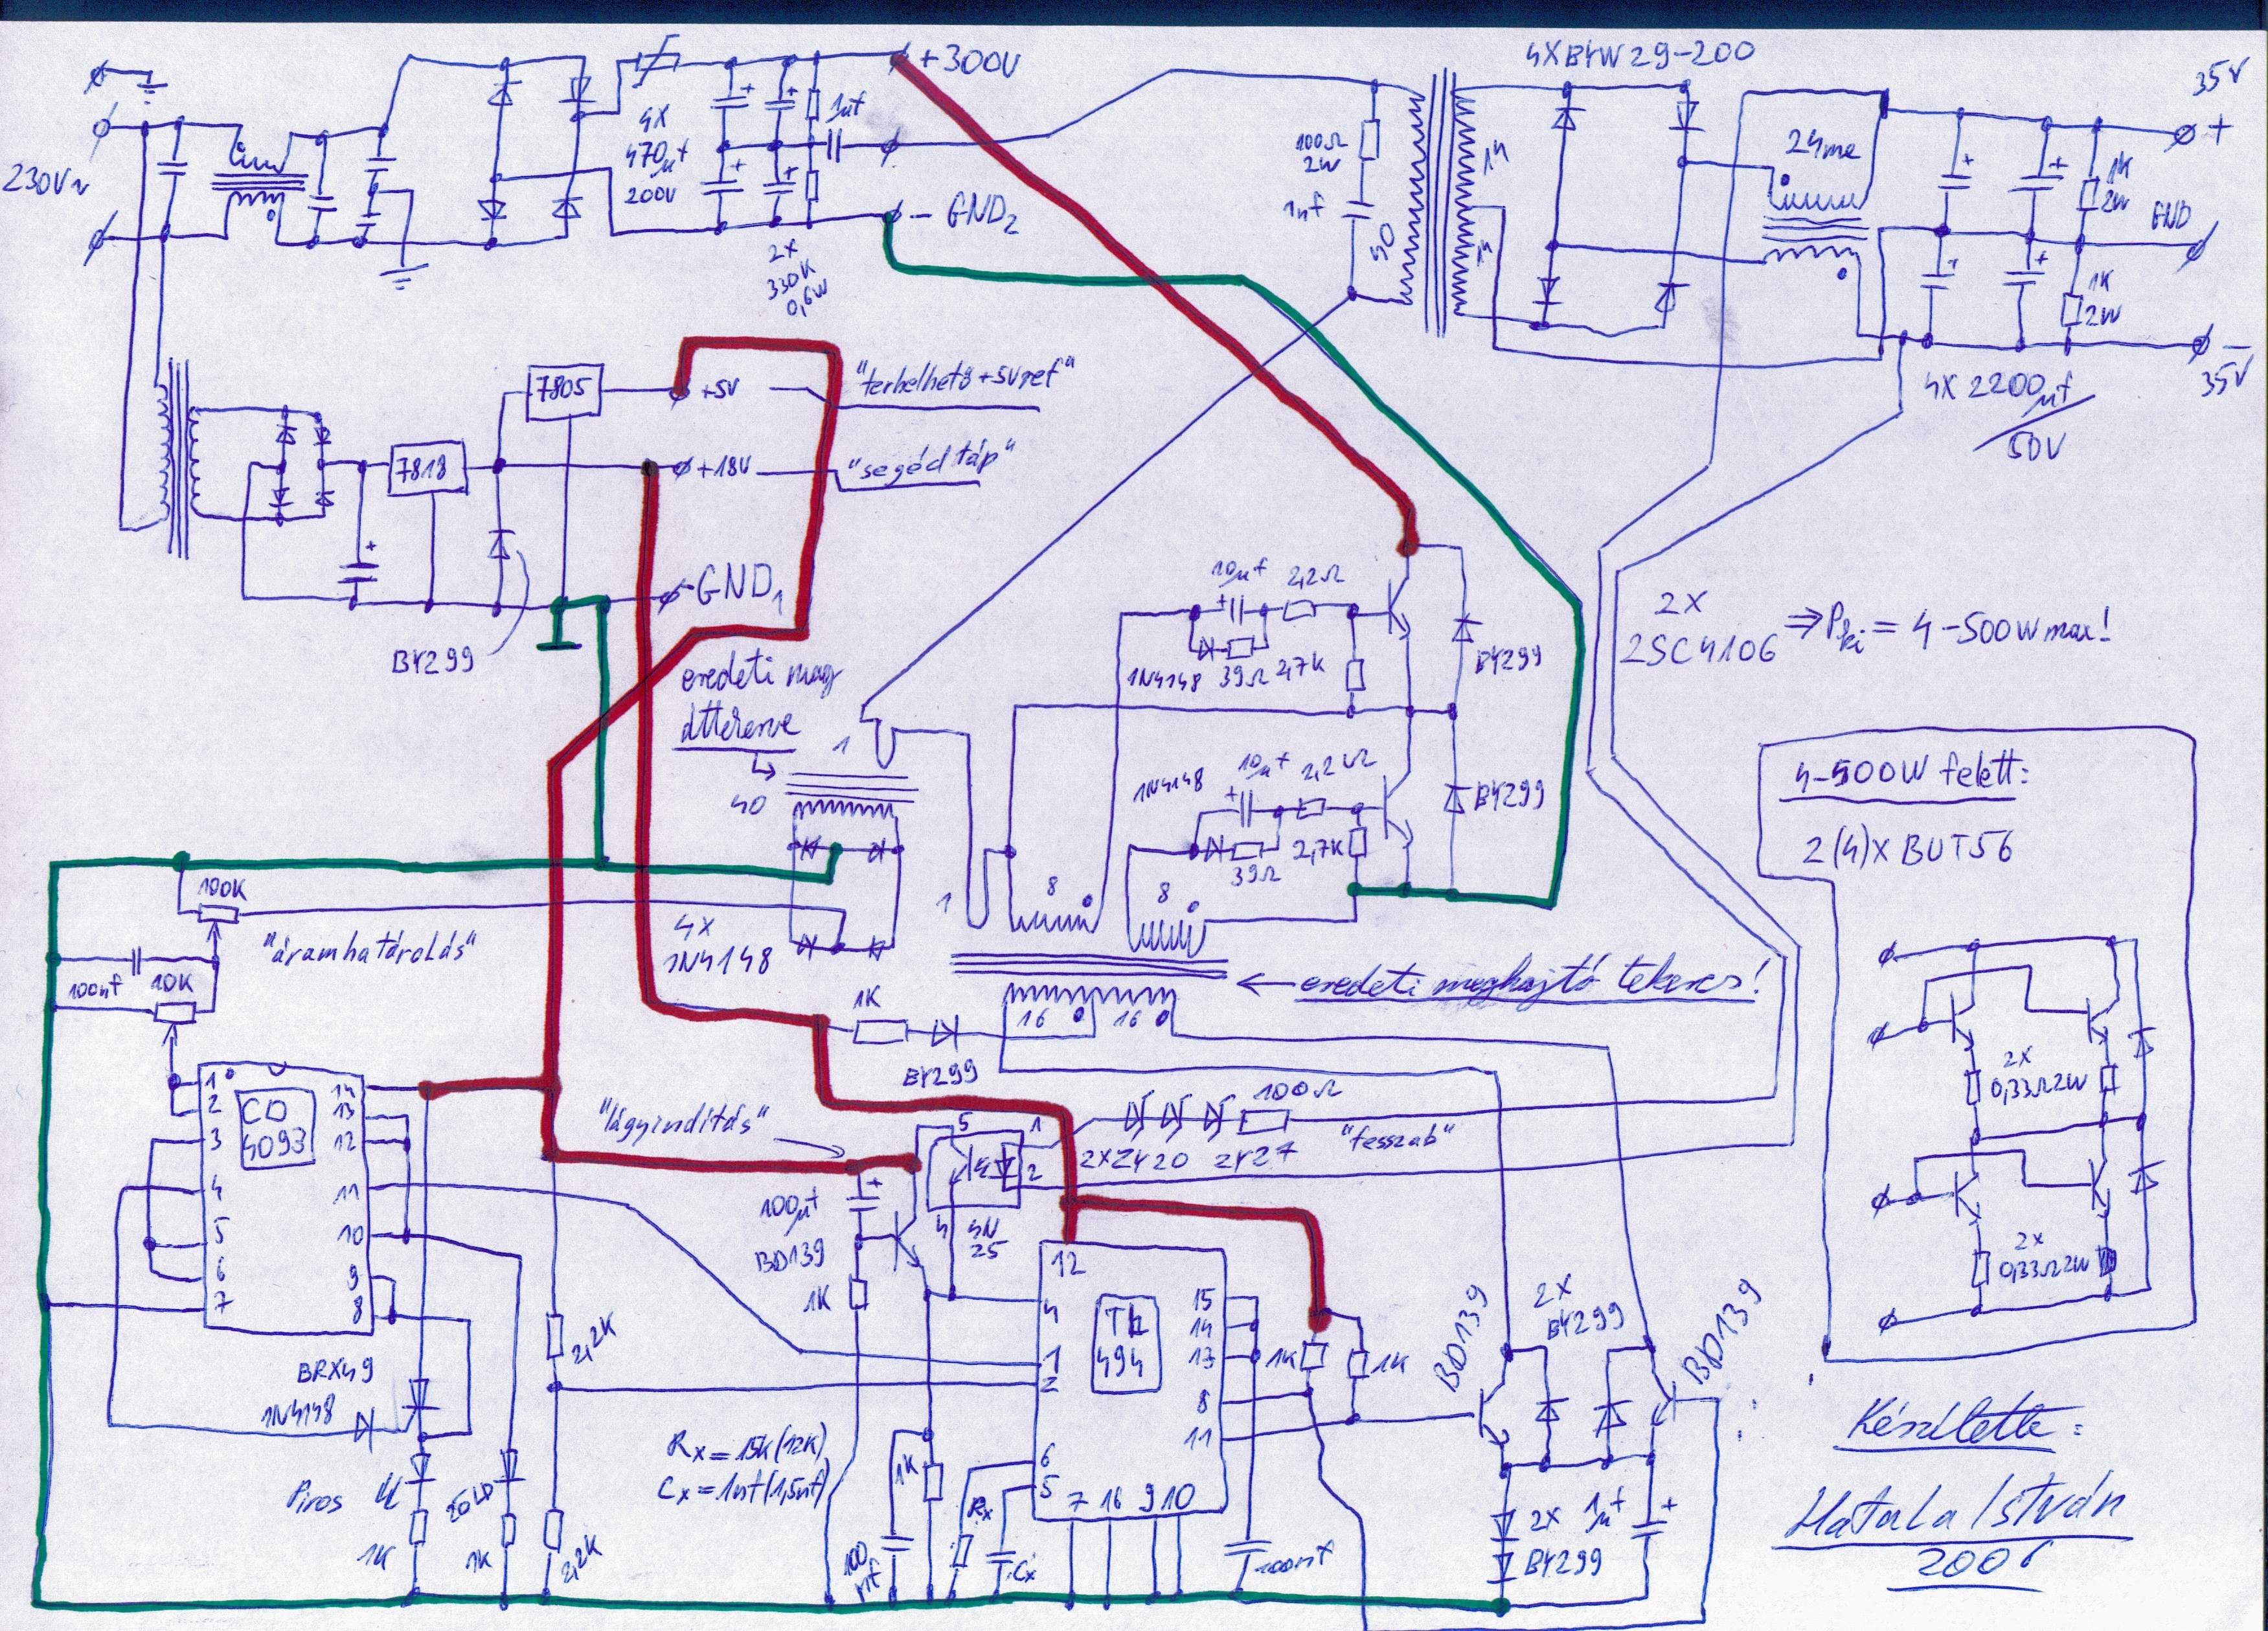 +300V
4XBYW29-200
35V
+
230V~
4X
470µf
200V
1µf
100Ω
2W
1nf
50
14
14
24me
1K
2W
GND
- GND2
2X
330K
0,6W
1K
2W
-
35V
4X2200µf
50V
7805
+5V
"terhelhető+5Vref"
7818
+18V
"segéd táp"
-GND1
BY299
10µf
2,2Ω
1N4148
39Ω
2,7K
BY299
2X
2SC4106
⇒Pki = 4-500W max!
eredeti mag
áttekerve
1
40
1N4148
10µf
2,2Ω
39Ω
2,7K
BY299
4-500W felett:
2(4)X BUT56
100K
1
8
8
"áramhatárolás"
4X
1N4148
100nf
10K
eredeti meghajtó tekercs!
1K
16
16
BY299
2X
0,33Ω2W
"lágyindítás"
100Ω
5
1
2
4
2XZY20
ZY27
"fesszab"
1
2
3
4
5
6
7
CD
4093
14
13
12
11
10
9
8
100µf
BD139
1K
4N
25
2X
0,33Ω2W
12
4
1
2
6
5
TL
494
15
14
13
8
11
7
16
9
10
1K
1K
BD139
2X
BY299
BD139
2,2K
BRX49
1N4148
Rx = 15k(12k)
Cx = 1nf(1,5nf)
1K
Piros
Zöld
1K
1K
2,2K
100
nf
Rx
Cx
100nf
2X
BY299
1µf
Készítette:
Hatala István
2006